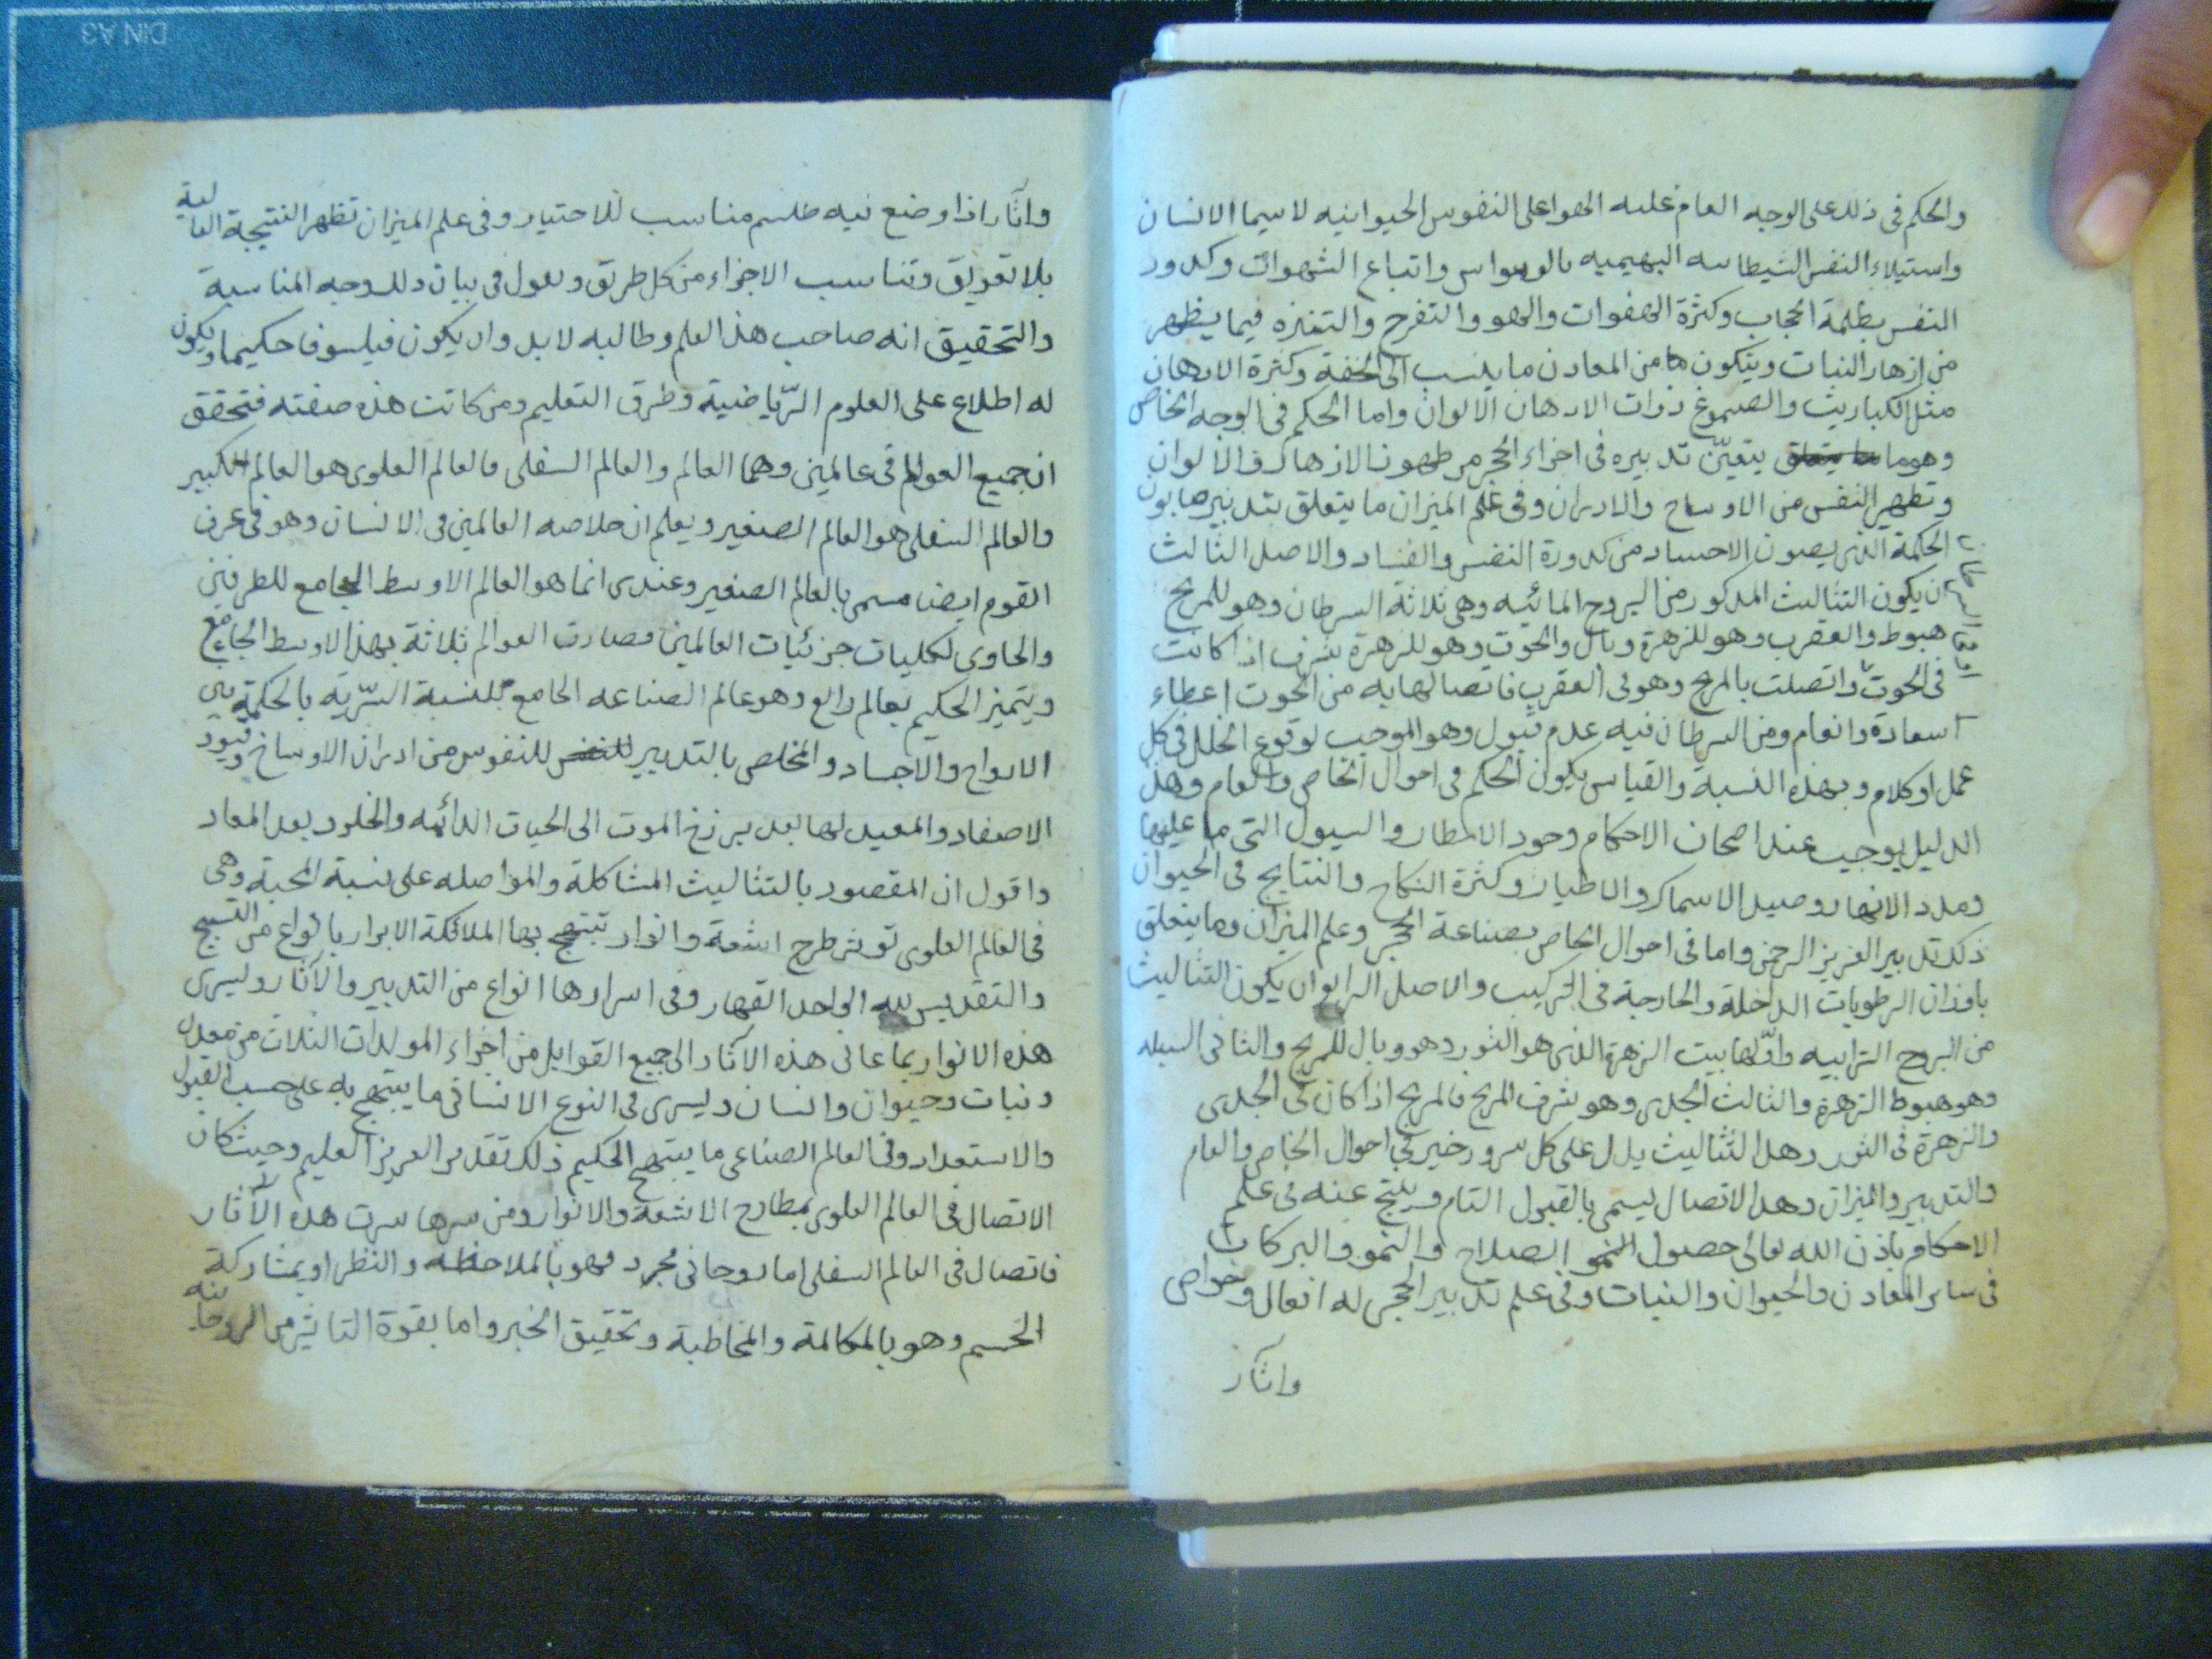 والحكم فى ذلك على الوجه العام غلبه الهوا على النفوس الحيوانيه لاسيما الانسان
واستيلاء النفس الشيطانيه البهيميه بالوسواس واتباع الشهوات وكدور
النفس بظلمة الحجاب وكثرة الهفوات واللهو والتفرح والتنزه فيما يظهر
من ازهار النبات ويتكون من المعادن ما ينسب الى الخفة وكثرة الادهان
مثل الكباريت والصموغ ذوات الادهان الالوان واما الحكم فى الوجه الخاص
وهو ما يتعلق يتعيّن تدبيره فى اجزاء الحجر من ظهور الازهار والالوان
وتطهير النفس من الاوساخ والادران وفى علم الميزان ما يتعلق بتدبير صابون
الحكمة الذى يصون الاجساد من كدورة النفس والفساد والاصل الثالث
ان يكون التثاليث المذكور من البروج المائيه وهى ثلاثة السرطان وهو للمريخ
هبوط والعقرب وهو للزهرة وبال والحوت وهو للزهرة شرف اذا كانت
فى الحوت واتصلت بالمريخ وهو فى العقرب فاتصالها به من الحوت اعطاء
سعادة وانعام ومن السرطان فيه عدم قبول وهو الموجب لوقوع الخلل فى كل
عمل او كلام وبهذه النسبة والقياس يكون الحكم فى احوال الخاص والعام وهذا
الدليل يوجب عند اصحاب الاحكام وجود الامطار والسيول التى ما عليها
ومدد الانهار وصيد الاسماك والاطيار وكثرة النكاح والنتايج فى الحيوان
ذلك تدبير العزيز الرحمن واما فى احوال الخاص بصناعة الحجر وعلم الميزان وما يتعلق
باوزان الرطوبات الداخلة والخارجة فى التركيب والاصل الرابع ان يكون التثاليث
من البروج الترابيه واوّلها بيت الزهرة الذى هو الثور وهو وبال للمريخ والثانى السنبله
وهو هبوط الزهرة والثالث الجدى وهو شرف المريخ فالمريخ اذا كان فى الجدى
والزهرة فى الثور وهذا التثاليث يدل على كل سرور خير فى احوال الخاص والعام
والتدبير والميزان وهذا الاتصال يسمى بالقبول التام وينتج عنه فى علم
الاحكام باذن الله تعالى حصول النمو الصلاح والنمو والبركات
فى ساير المعادن والحيوان والنبات وفى علم تدبير الحجر له افعال وخواص
واثار
واثار اذا وضع فيه طلسم مناسب للاختيار وفى علم الميزان تظهر النتيجة العالية
بلا تعويق وتناسب الاجزاء من كل طريق ونقول فى بيان ذلك وجه المناسبة
والتحقيق انه صاحب هذا العلم وطالبه لابد وان يكون فيلسوفا حكيما ويكون
له اطلاع على العلوم الرّياضية وطرق التعليم ومن كانت هذه صفته فتحقق
ان جميع العوالم فى عالمين وهما العالم والعالم السفلى فالعالم العلوى هو العالم الكبير
والعالم السفلى هو العالم الصغير ويعلم ان خلاصه العالمين فى الانسان وهو فى عرف
القوم ايضا مسمى بالعالم الصغير وعندى انما هو العالم الاوسط الجامع للطرفين
والحاوى لكليات جزئيات العالمين فصارت العوالم ثلاثة بهذا الاوسط الجامع
ويتميز الحكيم بعالم رابع وهو عالم الصناعه الجامع للنسبة السّرّية بالحكمة بين
الارواح والاجساد والمخلص بالتدبير للنفوس من ادران الاوساخ وقيود
الاصفاد والمعيد لها بعد برزخ الموت الى الحيات الدائمه والخلود بعد المعاد
واقول ان المقصود بالتثاليث المشاكلة والمواصله على نسبة المحبة وهى
فى العالم العلوى توثر طرح اشعة وانوار تبتهج بها الملائكة الابرار بانواع من التسبيح
والتقديس لله الواحد القهار وفى اسرارها انواع من التدبير والآثار وليسرى
هذه الانوار بما عانى هذه الآثار الى جميع القوابل من اجزاء المولدات الثلاث من معدن
ونبات وحيوان وانسان وليسرى فى النوع الانسانى ما يبتهج به على حسب القبول
والاستعداد وفى العالم الصناعى ما يبتهج الحكيم ذلك تقدير العزيز العليم وحيث كان
الاتصال فى العالم العلوى بمطارح الاشعة والانوار ومن سرها سرت هذه الآثار
فاتصال فى العالم السفلى اما روحانى مجرد وهو بالملاحظه والنظر او بمشاركة
الجسم وهو بالمكالمة والمخاطبة وتحقيق الخبر واما بقوة التاثير من الروحانيه